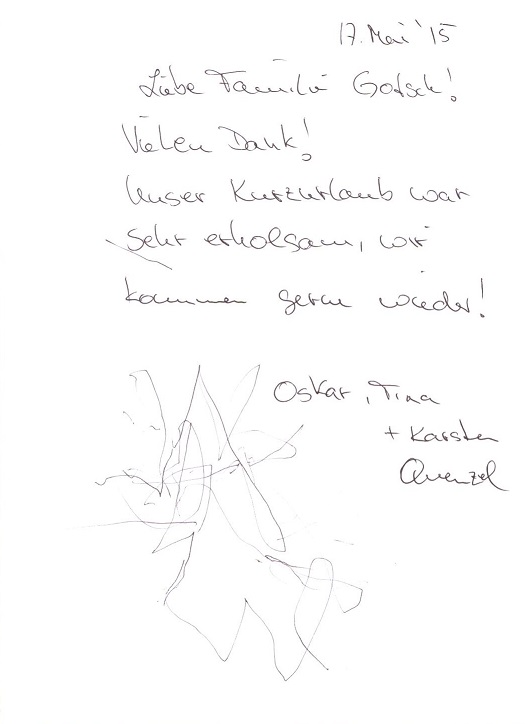 17. Mai '15
Liebe Familie Gotsch!
Vielen Dank!
Unser Kurzurlaub war
sehr erholsam, wir
kommen gerne wieder!
Oskar, Tina
+ Karsten
Quenzel